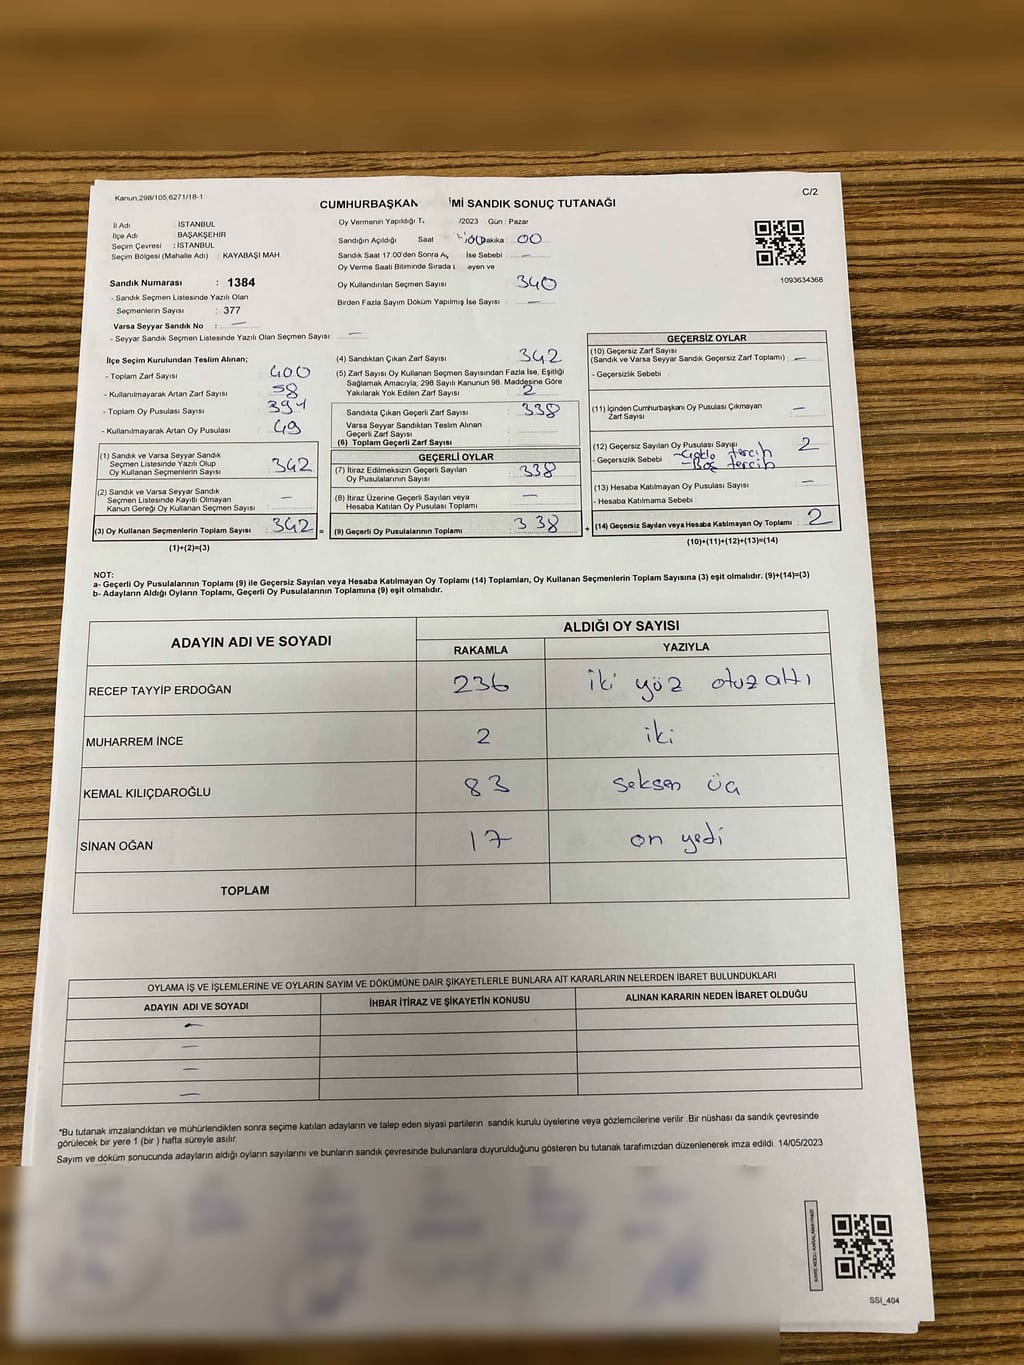 Kanun,298/105,6271/18-1
C/2
CUMHURBAŞKAN İMİ SANDIK SONUÇ TUTANAĞI
İl Adı : İSTANBUL
İlçe Adı : BAŞAKŞEHİR
Seçim Çevresi : İSTANBUL
Seçim Bölgesi (Mahalle Adı) : KAYABAŞI MAH.
Sandık Numarası : 1384
- Sandık Seçmen Listesinde Yazılı Olan
Seçmenlerin Sayısı : 377
Varsa Seyyar Sandık No : —
- Seyyar Sandık Seçmen Listesinde Yazılı Olan Seçmen Sayısı: —
Oy Vermenin Yapıldığı /2023 Gün : Pazar
Sandığın Açıldığı Saat Dakika : 00
Sandık Saat 17.00'den Sonra İse Sebebi : —
Oy Verme Saati Bitiminde Sırada eyen ve
Oy Kullandırılan Seçmen Sayısı : 340
Birden Fazla Sayım Döküm Yapılmış İse Sayısı : —
1093634368
İlçe Seçim Kurulundan Teslim Alınan;
- Toplam Zarf Sayısı : 400
- Kullanılmayarak Artan Zarf Sayısı : 58
- Toplam Oy Pusulası Sayısı : 391
- Kullanılmayarak Artan Oy Pusulası : 49
(1) Sandık ve Varsa Seyyar Sandık
Seçmen Listesinde Yazılı Olup
Oy Kullanan Seçmenlerin Sayısı : 342
(2) Sandık ve Varsa Seyyar Sandık
Seçmen Listesinde Kayıtlı Olmayan
Kanun Gereği Oy Kullanan Seçmen Sayısı : —
(3) Oy Kullanan Seçmenlerin Toplam Sayısı : 342 =
(1)+(2)=(3)
(4) Sandıktan Çıkan Zarf Sayısı : 342
(5) Zarf Sayısı Oy Kullanan Seçmen Sayısından Fazla İse, Eşitliği
Sağlamak Amacıyla; 298 Sayılı Kanunun 98. Maddesine Göre
Yakılarak Yok Edilen Zarf Sayısı : 2
Sandıkta Çıkan Geçerli Zarf Sayısı : 338
Varsa Seyyar Sandıktan Teslim Alınan
Geçerli Zarf Sayısı :
(6) Toplam Geçerli Zarf Sayısı :
GEÇERLİ OYLAR
(7) İtiraz Edilmeksizin Geçerli Sayılan
Oy Pusulalarının Sayısı : 338
(8) İtiraz Üzerine Geçerli Sayılan veya
Hesaba Katılan Oy Pusulası Toplamı : —
(9) Geçerli Oy Pusulalarının Toplamı : 338 +
GEÇERSİZ OYLAR
(10) Geçersiz Zarf Sayısı
(Sandık ve Varsa Seyyar Sandık Geçersiz Zarf Toplamı) : —
- Geçersizlik Sebebi :
(11) İçinden Cumhurbaşkanı Oy Pusulası Çıkmayan
Zarf Sayısı : —
(12) Geçersiz Sayılan Oy Pusulası Sayısı : 2
- Geçersizlik Sebebi : - Çoklu tercih
- Boş tercih
(13) Hesaba Katılmayan Oy Pusulası Sayısı : —
- Hesaba Katılmama Sebebi :
(14) Geçersiz Sayılan veya Hesaba Katılmayan Oy Toplamı : 2
(10)+(11)+(12)+(13)=(14)
NOT:
a- Geçerli Oy Pusulalarının Toplamı (9) ile Geçersiz Sayılan veya Hesaba Katılmayan Oy Toplamı (14) Toplamları, Oy Kullanan Seçmenlerin Toplam Sayısına (3) eşit olmalıdır. (9)+(14)=(3)
b- Adayların Aldığı Oyların Toplamı, Geçerli Oy Pusulalarının Toplamına (9) eşit olmalıdır.
ADAYIN ADI VE SOYADI
ALDIĞI OY SAYISI
RAKAMLA YAZIYLA
RECEP TAYYİP ERDOĞAN 236 iki yüz otuz altı
MUHARREM İNCE 2 iki
KEMAL KILIÇDAROĞLU 83 seksen üç
SİNAN OĞAN 17 on yedi
TOPLAM
OYLAMA İŞ VE İŞLEMLERİNE VE OYLARIN SAYIM VE DÖKÜMÜNE DAİR ŞİKAYETLERLE BUNLARA AİT KARARLARIN NELERDEN İBARET BULUNDUKLARI
ADAYIN ADI VE SOYADI İHBAR İTİRAZ VE ŞİKAYETİN KONUSU ALINAN KARARIN NEDEN İBARET OLDUĞU
—
—
—
—
*Bu tutanak imzalandıktan ve mühürlendikten sonra seçime katılan adayların ve talep eden siyasi partilerin sandık kurulu üyelerine veya gözlemcilerine verilir. Bir nüshası da sandık çevresinde
görülecek bir yere 1 (bir ) hafta süreyle asılır.
Sayım ve döküm sonucunda adayların aldığı oyların sayılarını ve bunların sandık çevresinde bulunanlara duyurulduğunu gösteren bu tutanak tarafımızdan düzenlenerek imza edildi. 14/05/2023
SSI_404